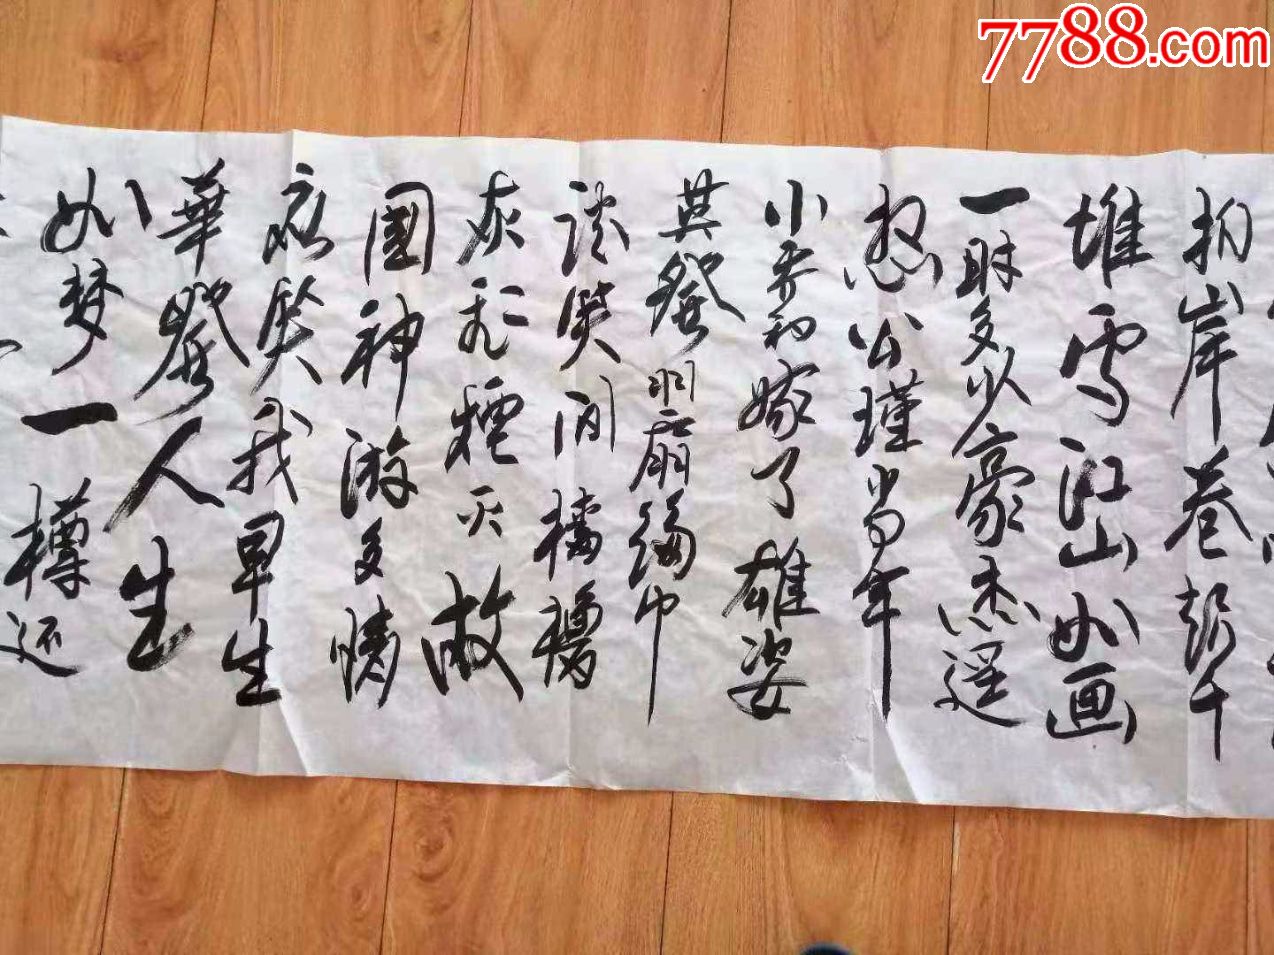 7788.com
拍岸卷起千
堆雪江山如画
一时多少豪杰遥
想公瑾当年
小乔初嫁了雄姿
英發羽扇綸巾
谈笑间樯橹
灰飛煙灭故
國神游多情
应笑我早生
華發人生
如梦一樽还